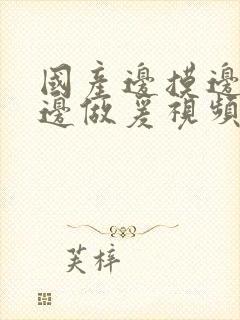 國產邊摸邊
邊做爰視頻
芙梓